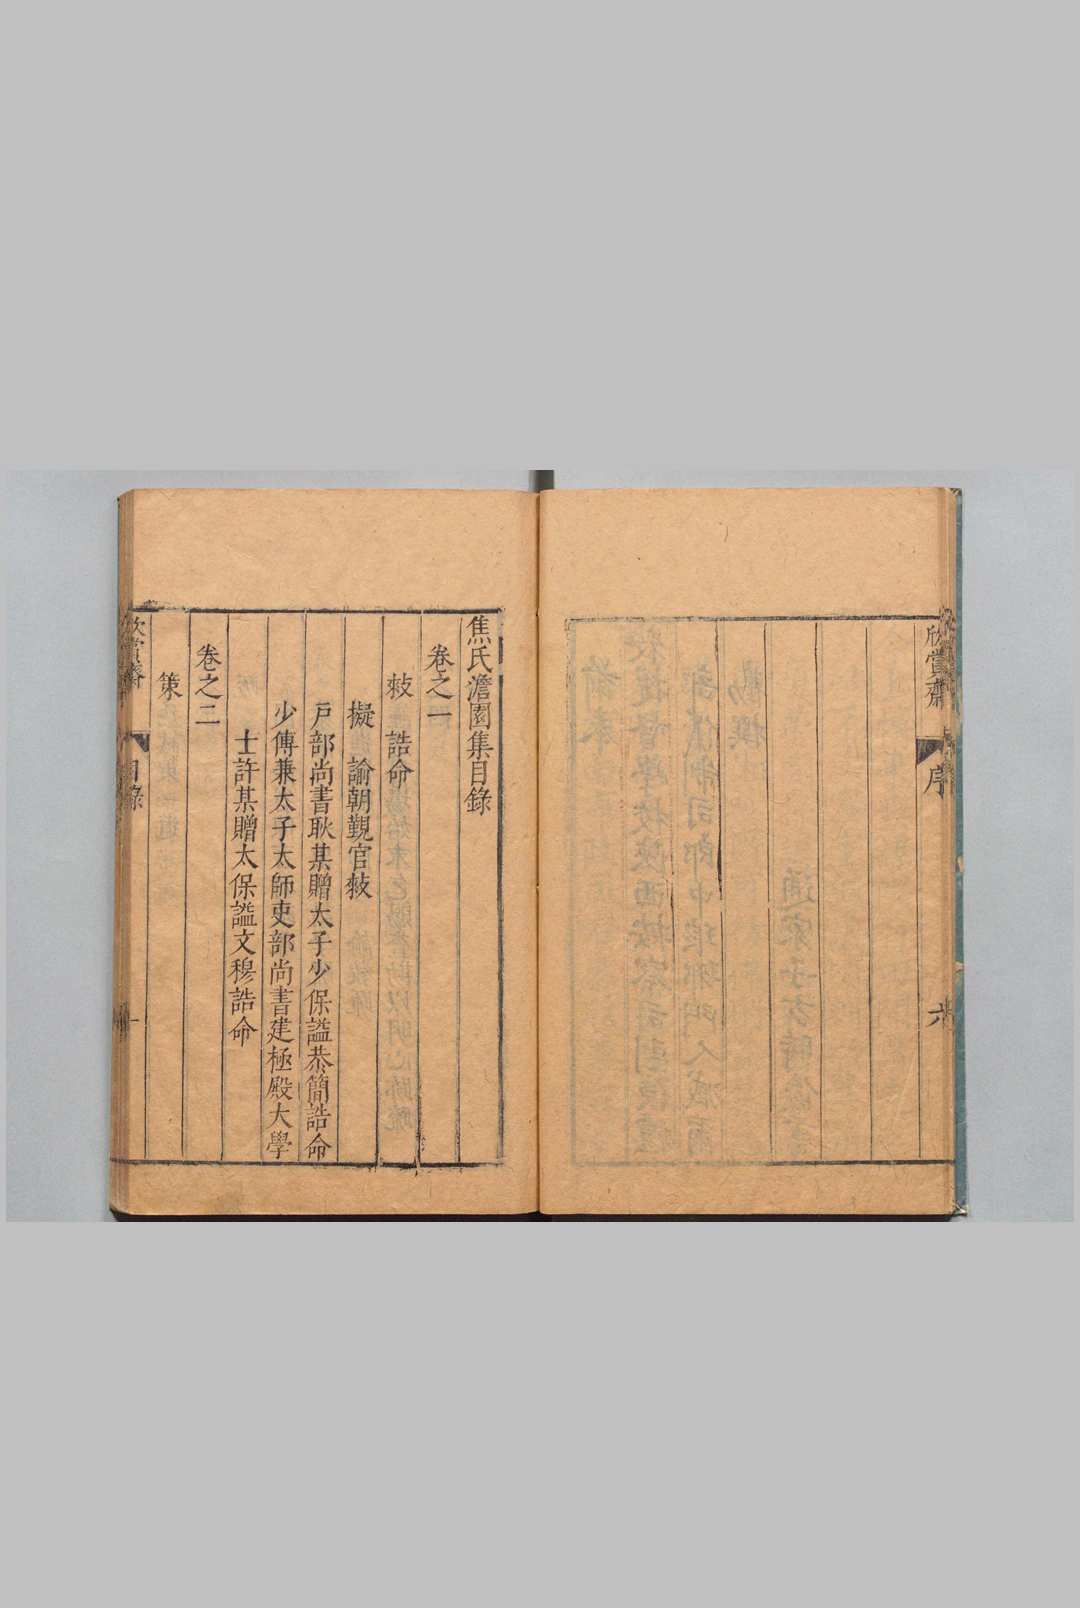 欣賞齋
序
六
焦氏澹園集目錄
卷之一
敕 誥命
擬諭朝覲官敕
戶部尚書耿某贈太子少保謚恭簡誥命
少傅兼太子太師吏部尚書建極殿大學
士許某贈太保謚文穆誥命
卷之二
策
欣賞齋
目錄
一